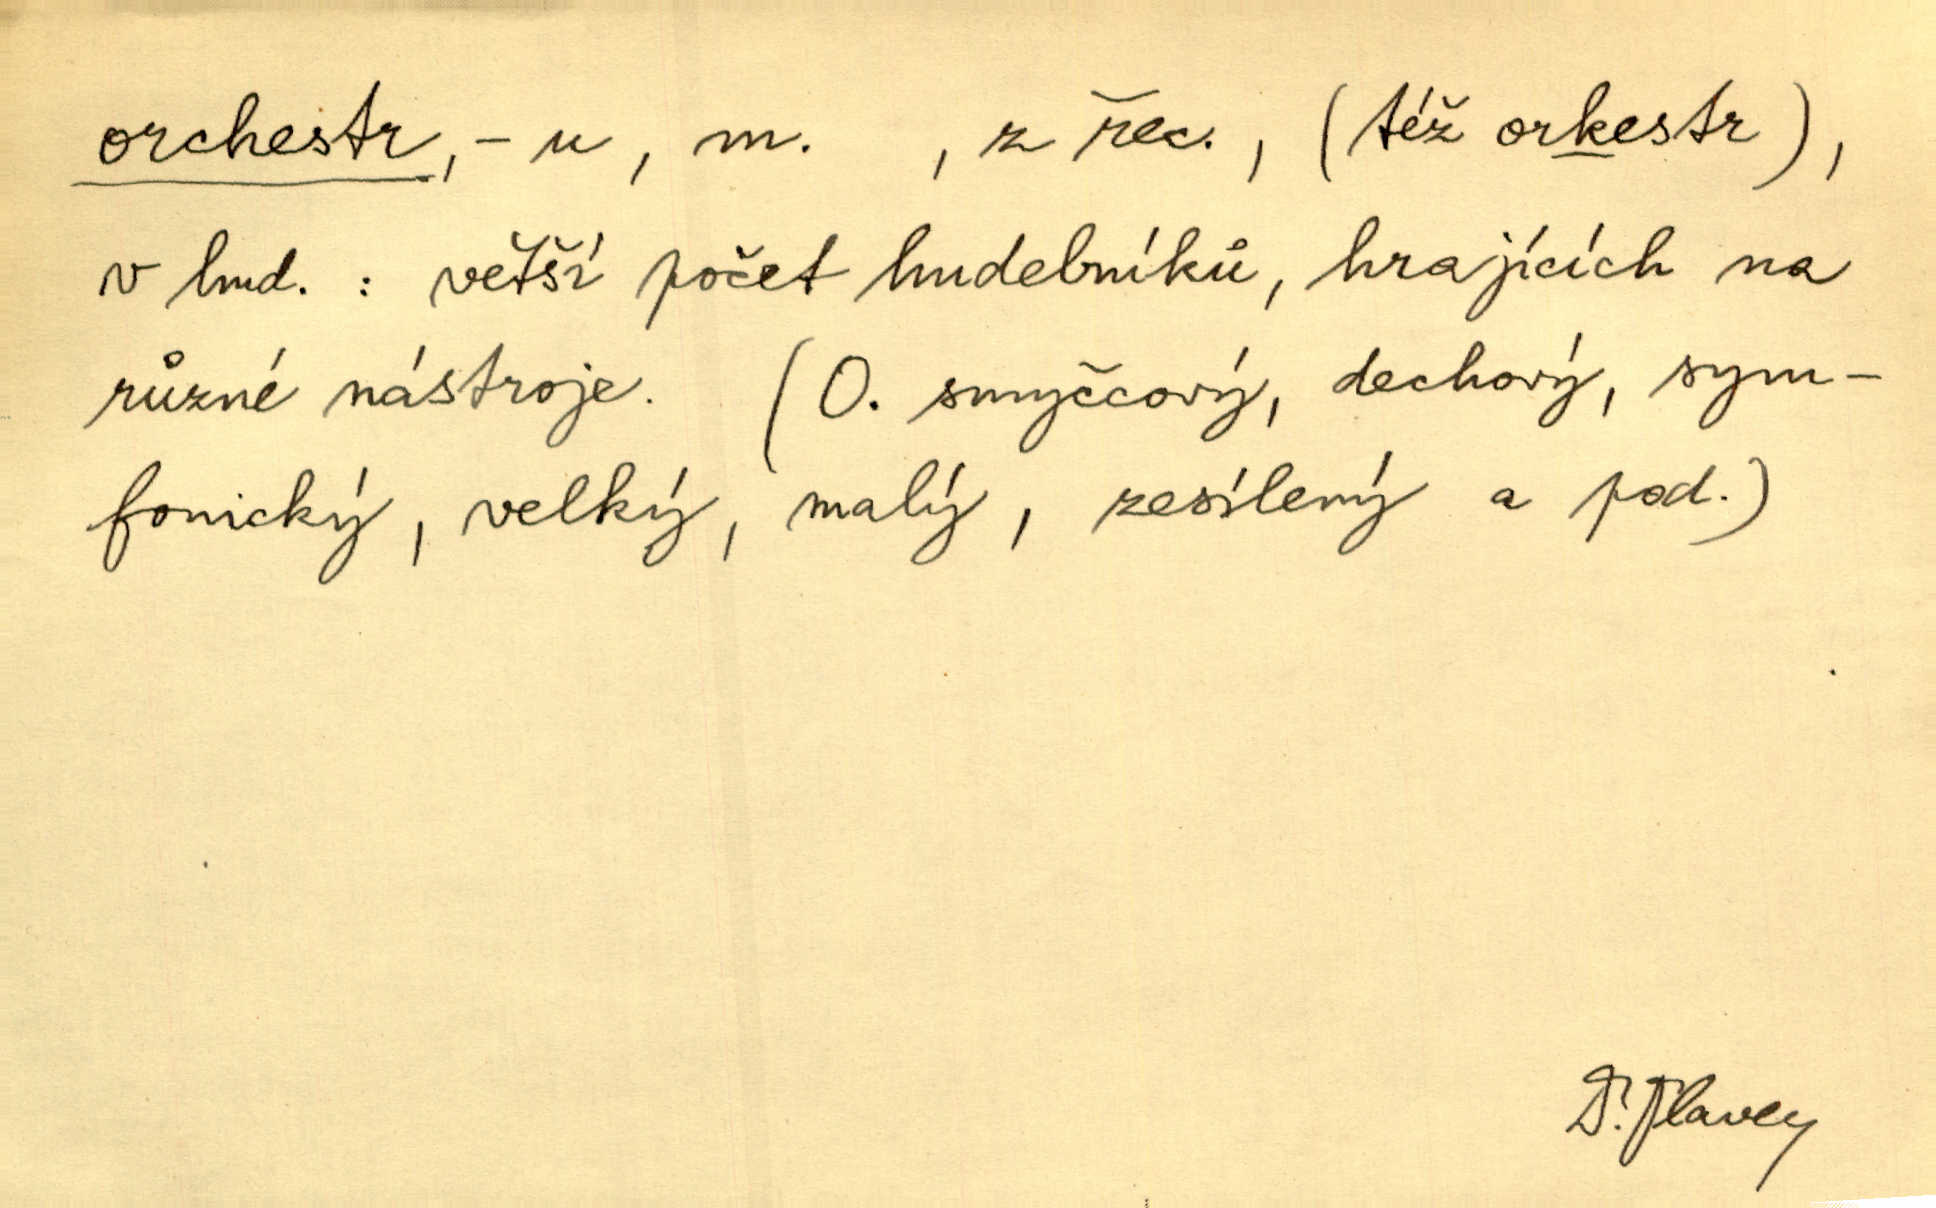 orchestr, -u, m. , z řec., (též orkestr),
v hud. : větší počet hudebníků, hrajících na
různé nástroje. (O. smyčcový, dechový, sym-
fonický, velký, malý, zesílený a pod.)